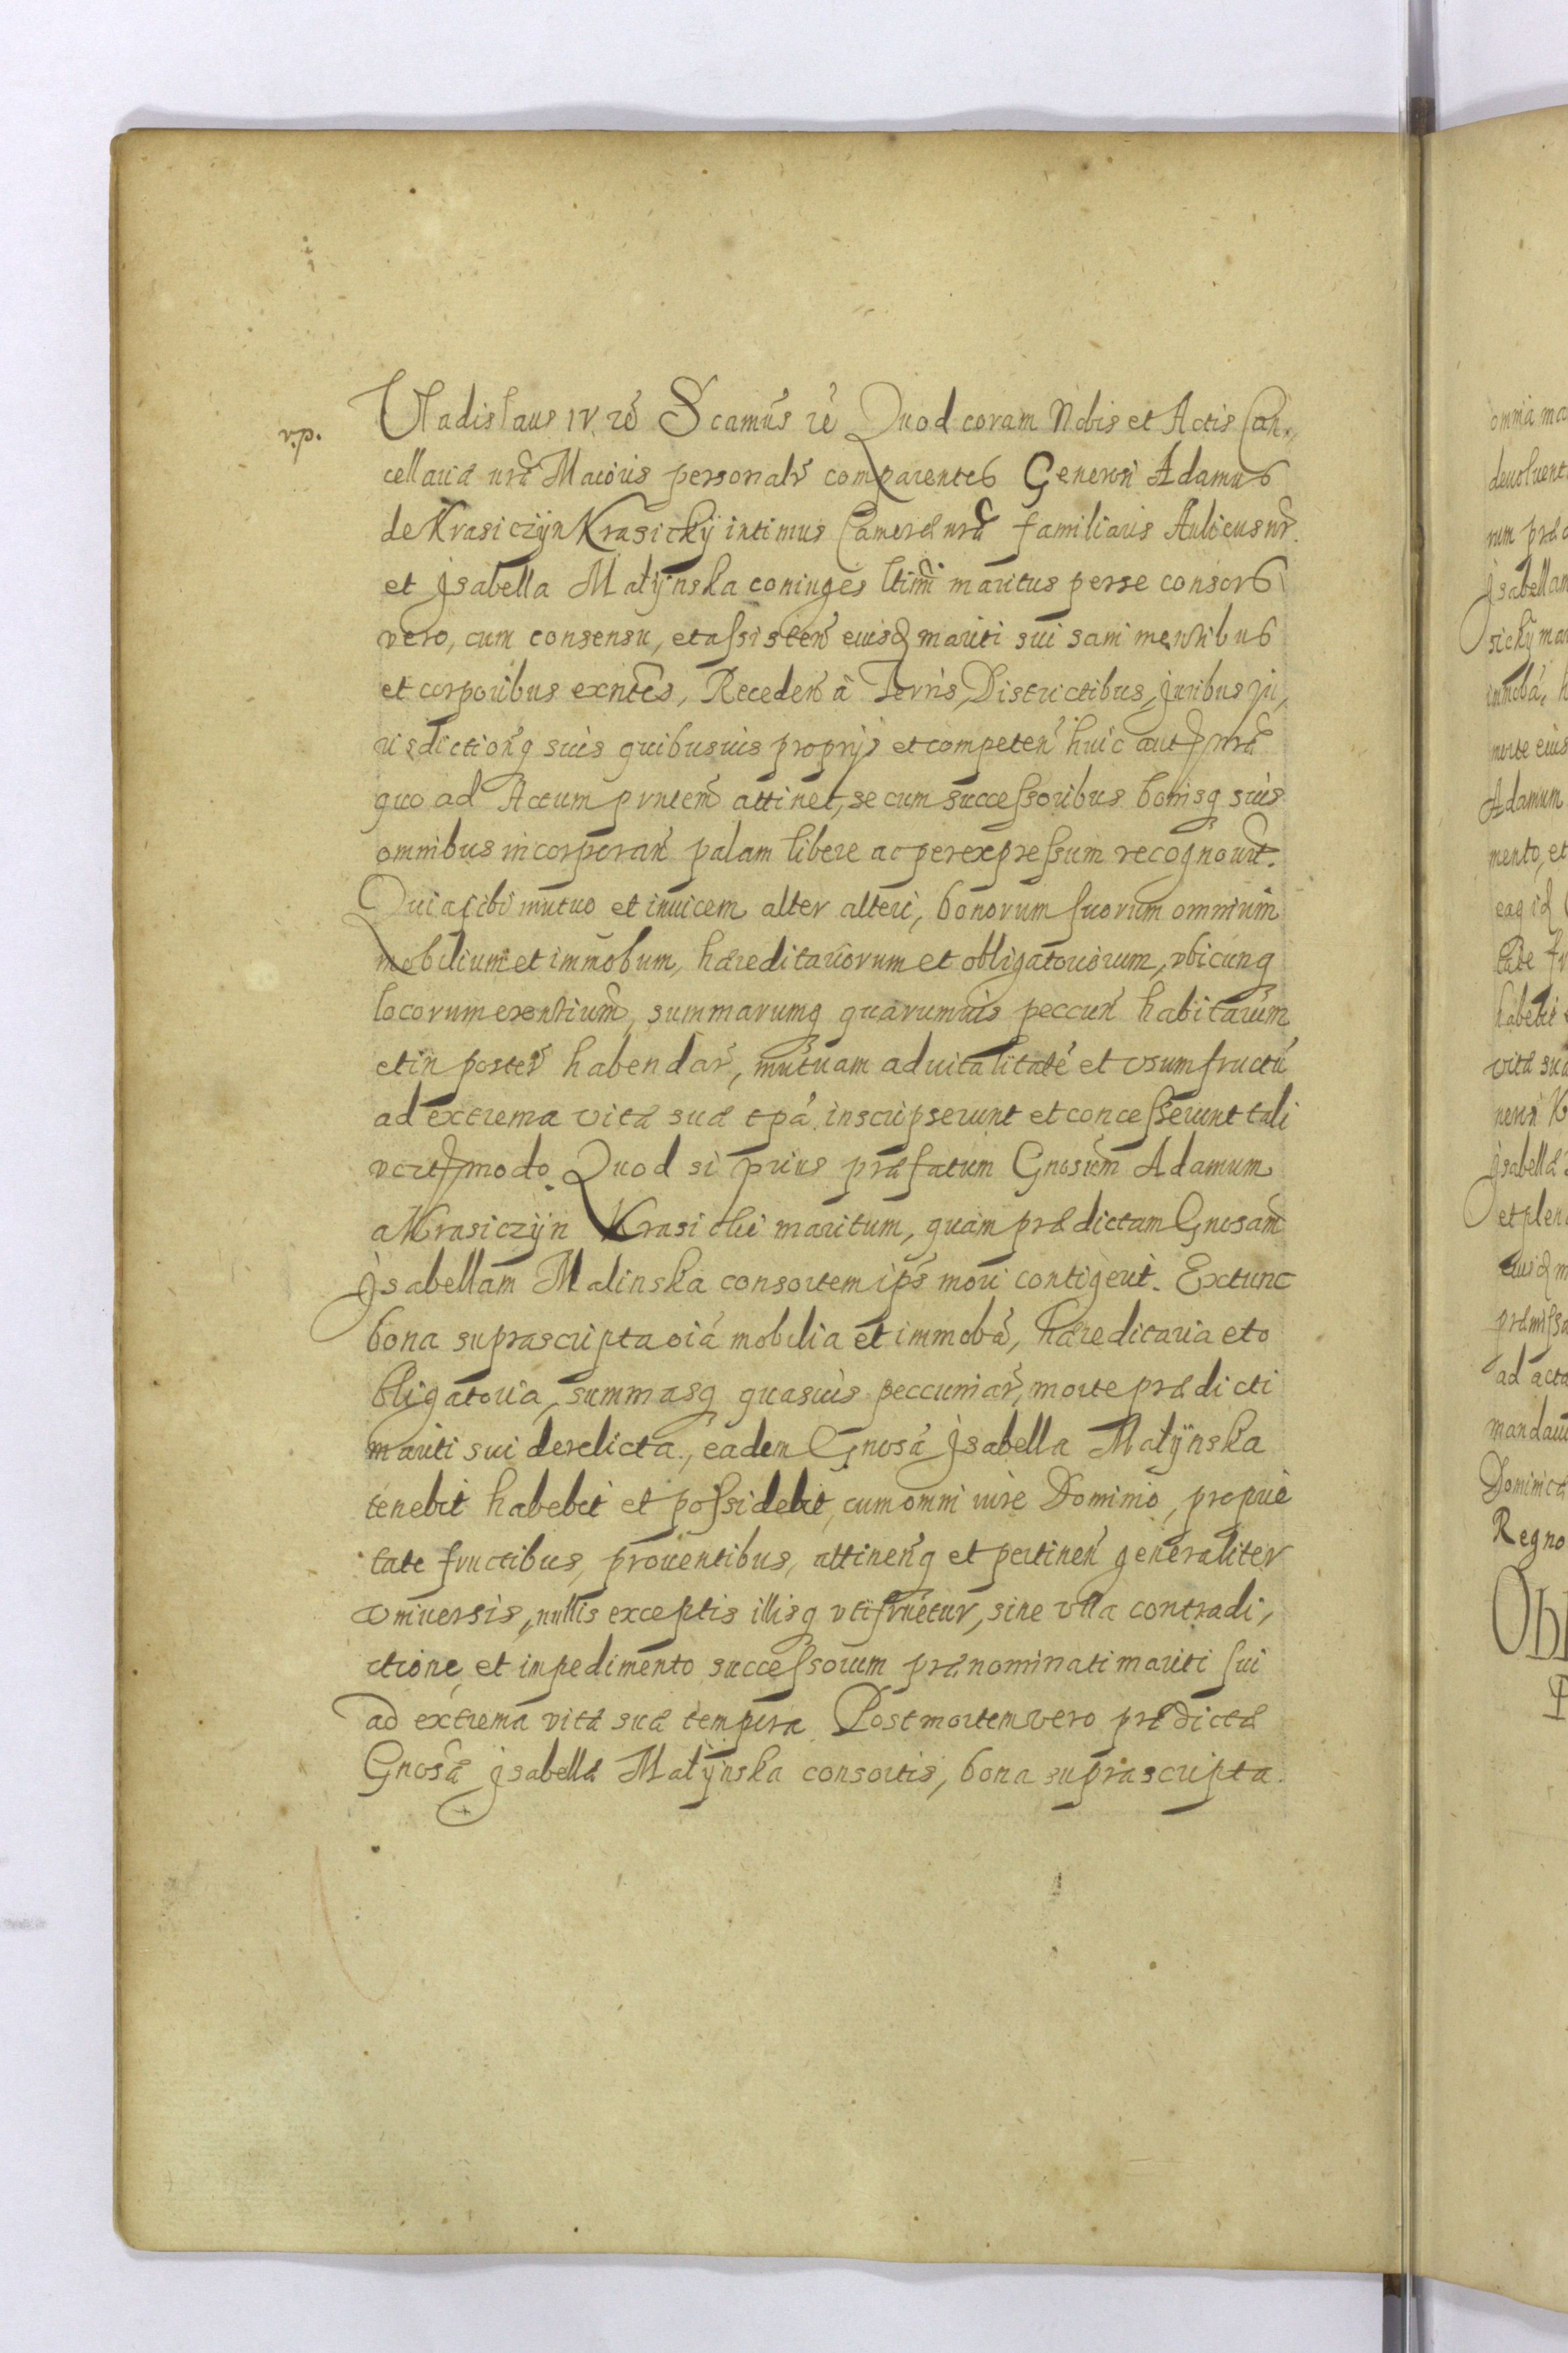 v.p.
Vladislaus IV. rẽ Scamũs rẽ Quod coram Nobis et Actis Can,
cellariæ nræ Maioris personalr comparentes Generosi Adamus
de Krasiczÿn Krasickÿ intimus Cameræ nræ familiaris Aulicus nr.
et Jsabella Malÿnska coniuges ltimi maritus per se consors
vero, cum consensu, et assisten eiusd mariti sui sani mentibus
et corporibus exntes, Receden à Terris, Districtibus, Juribus Ju,
risdictionq suis quibusuis proprijs et competen huic aut nræ
quo ad Actum pntem attinet, se cum successoribus bonisq suis
omnibus incorporan palam libere ac per expressum recognouert.
Quia sibi mutuo et inuicem alter alteri, bonorum suorum omnium
mobilium et immobum, hæreditariorum et obligatoriorum, vbicunq
locorum exentium, summarumq quarumuis peccun habitarum
et in poster habendar, mutuam aduitalitatẽ et vsumfructũ
ad extrema vitæ suæ tpa inscripserunt et concesserunt tali
vt modo. Quod si prius præfatum Gnosum Adamum
a Krasiczÿn Krasicki maritum, quam prædictam Gnosam
Jsabellam Malinska consortem ips mori contigerit. Extunc
bona suprascripta oia mobilia et immoba, hæreditaria et o
bligatoria, summasq quasuis peccuniar, morte prædicti
mariti sui derelicta, eadem Gnosa Jsabella Malÿnska
tenebit habebit et possidebit, cum omni iure Dominio, proprie
tate fructibus, prouentibus, attinenq et pertinen generaliter
vniuersis, nullis exceptis illisq vtifruetur, sine vlla contradi,
ctione et inpedimento successorum prænominati mariti sui
ad extrema vitæ suæ tempora Post mortem vero prædictæ
Gnosæ Jsabellæ Malÿnska consortis, bona suprascripta.